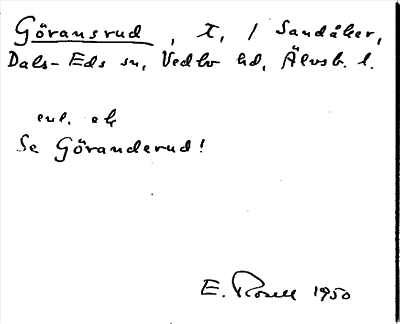 Göransrud, T, / Sandåker,
Dals-Eds sn, Vedbo hd, Älvsb. l.
enl. ek
Se Göranderud!
E. Rosell 1950